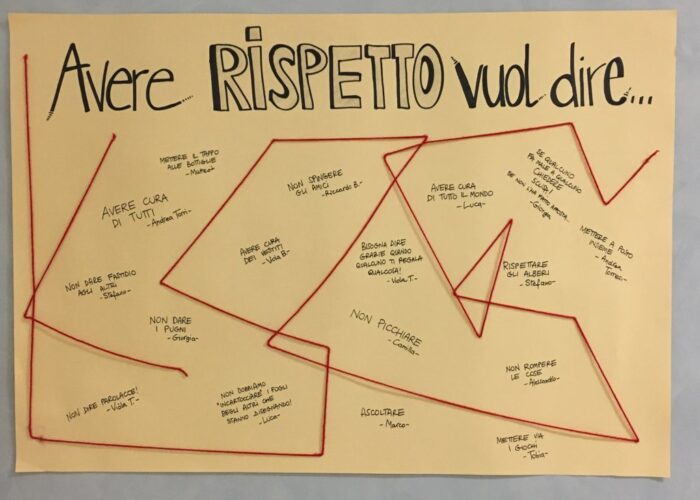 Avere RISPETTO vuol dire...
METTERE IL TAPPO
ALLE BOTTIGLIE
AVERE CURA
DI TUTTI
-Andrea Torri-
NON SPINGERE
GLI AMICI
-Riccardo B.-
AVERE CURA
DI TUTTO IL MONDO
-Luca-
SE QUALCUNO
FA MALE A QUALCUNO
CHIEDERE
SCUSA!
SE NON L'HA FATTO APPOSTA...
-Giorgia-
METTERE A POSTO
INSIEME
-Andrea
NON DARE FASTIDIO
AGLI ALTRI
-Stefano-
AVERE CURA
DEI VESTITI
-Viola B.-
BISOGNA DIRE
GRAZIE QUANDO
QUALCUNO TI REGALA
QUALCOSA!
-Viola T.-
RISPETTARE
GLI ALBERI
-Stefano-
NON DARE
I PUGNI
-Giorgia-
NON PICCHIARE
-Camilla-
NON ROMPERE
LE COSE
-Alessandro-
NON DIRE PAROLACCE!
-Viola T.-
NON DOBBIAMO
"INCARTOCCIARE" I FOGLI
DEGLI ALTRI CHE
STANNO DISEGNANDO!
-Luca-
ASCOLTARE
-Marco-
METTERE VIA
I GIOCHI
-Tobia-